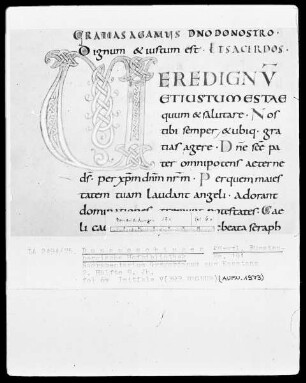 GRATIAS AGAMUS DNO DO NOSTRO ·
Dignum & iustum est · ET SACERDOS ·
UERE DIGNŪ
ET IUSTUM EST AE
quum & salutare · Nos
tibi semper, & ubiq, gra
tias agere · Dñe sc̄e pa
ter omnipotens aeterne
ds̄ · per xp̄m dnm nr̄m · Per quem maies
tatem tuam laudant angeli · Adorant
dominationes tremunt potestates · Cae
li cae beata seraph
Donaueschingen
2. Hälfte 9. Jh.
Initiale (VERE DIGNUM) (AUFN. 1973)